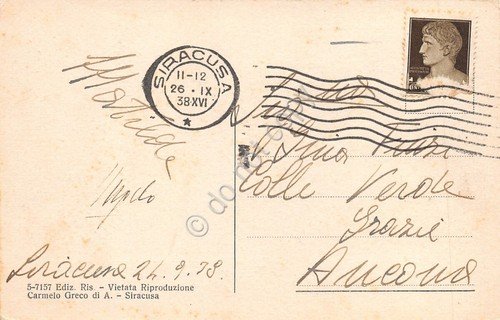 SIRACUSA
11-12
26·IX
38·XVI
Matilde
Siracusa 24.9.38.
5-7157 Ediz. Ris. - Vietata Riproduzione
Carmelo Greco di A. - Siracusa
Colle Verde
Grazie
Ancona